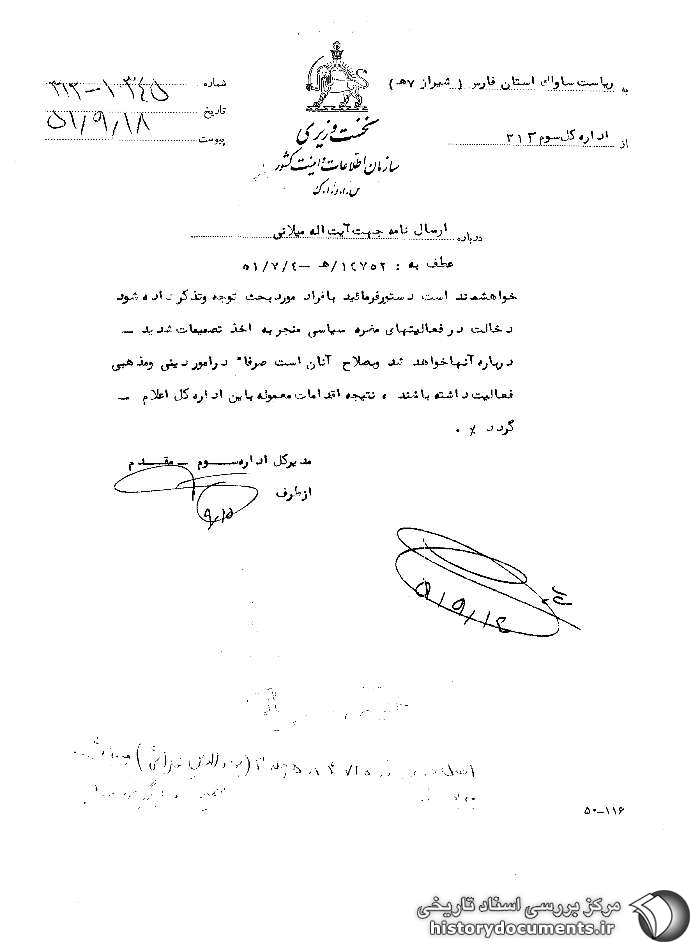 به ریاست ساواک استان فارس ( شیراز ۷ هـ )
از اداره کل سوم ۳۱۲
نخست وزیری
سازمان اطلاعات و امنیت کشور
س.ا.و.ا.ک
شماره
تاریخ ۵۱/۹/۱۸
پیوست
درباره ارسال نامه جهت آیت اله میلانی
عطف به : ۱۲۷۵۲/هـ – ۵۱/۷/۲۰
خواهشمند است دستور فرمائید بافراد مورد بحث توجه و تذکر داده شود
دخالت در فعالیتهای مضره سیاسی منجر به اخذ تصمیمات شدید –
درباره آنها خواهد شد و بصلاح آنان است صرفا" در امور دینی و مذهبی
فعالیت داشته باشند ، نتیجه اقدامات معموله باین اداره کل اعلام –
گردد ٪ .
مدیرکل اداره سوم – مقدم
از طرف
۹/۱۵
۵۰–۱۱۶
مرکز بررسی اسناد تاریخی
historydocuments.ir